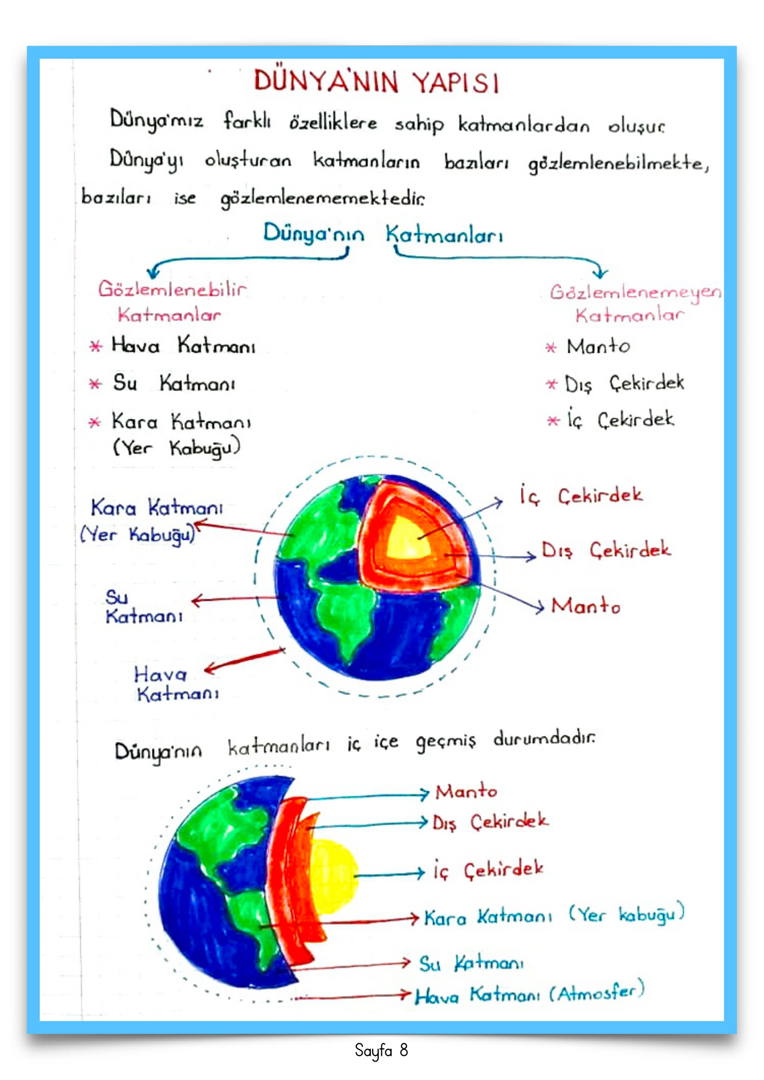 DÜNYA'NIN YAPISI
Dünya'mız farklı özelliklere sahip katmanlardan oluşur.
Dünya'yı oluşturan katmanların bazıları gözlemlenebilmekte,
bazıları ise gözlemlenememektedir.
Dünya'nın Katmanları
Gözlemlenebilir
Katmanlar
* Hava Katmanı
* Su Katmanı
* Kara Katmanı
(Yer Kabuğu)
Gözlemlenemeyen
Katmanlar
* Manto
* Dış Çekirdek
* İç Çekirdek
Kara Katmanı
(Yer Kabuğu)
Su
Katmanı
Hava
Katmanı
İç Çekirdek
Dış Çekirdek
Manto
Dünya'nın katmanları iç içe geçmiş durumdadır.
Manto
Dış Çekirdek
İç Çekirdek
Kara Katmanı (Yer kabuğu)
Su Katmanı
Hava Katmanı (Atmosfer)
Sayfa 8